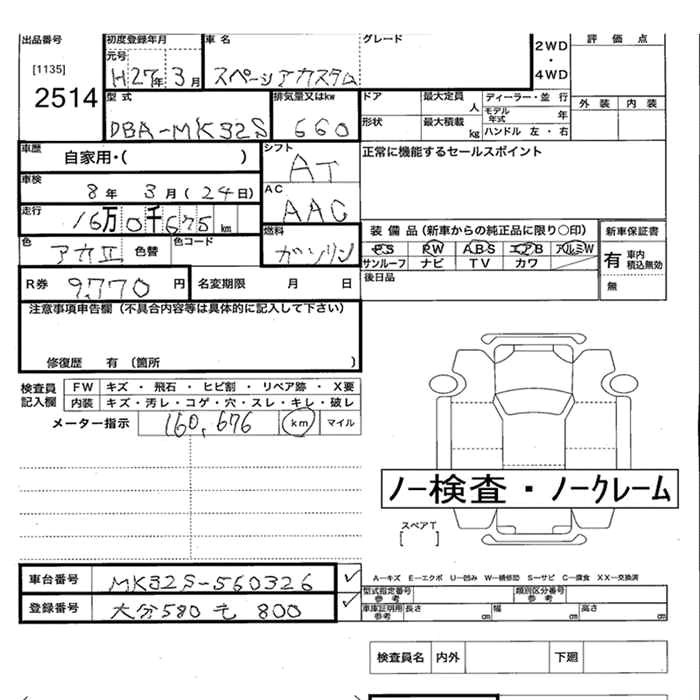 出品番号 初度登録年月 車名 グレード 2WD・4WD 評価点
[1135] 元号
2514 H27年3月 スペーシアカスタム
型式 排気量又はkw ドア 最大定員 人 ディーラー・並行 外装 内装
DBA-MK32S 660 形状 最大積載 kg モデル年式 年
ハンドル 左・右
車歴 自家用・( ) シフト AT 正常に機能するセールスポイント
車検 8年 3月(24日) AC AAC
走行 16万0千675km 燃料 ガソリン 装備品(新車からの純正品に限り〇印) 新車保証書
色 アカⅡ 色替 色コード PS PW ABS エアB アルミW 有 車内積込無効
サンルーフ ナビ TV カワ 無
R券 9,770円 名変期限 月 日 後日品
注意事項申告欄(不具合内容等は具体的に記入して下さい)
修復歴 有(箇所 )
検査員記入欄 FW キズ・飛石・ヒビ割・リペア跡・X要
内装 キズ・汚レ・コゲ・穴・スレ・キレ・破レ
メーター指示 160,676 km マイル
ノー検査・ノークレーム
スペアT
[ ]
A-キズ E-エクボ U-凹み W-補修跡 S-サビ C-腐食 XX-交換済
車台番号 MK32S-560326 ✓ 型式指定番号 参考 類別区分番号 参考
登録番号 大分580 も 800 ✓ 車庫証明用 参考 長さ cm 幅 cm 高さ cm
検査員名 内外 下廻